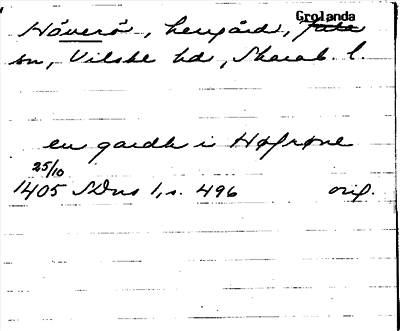 Grolanda
Håverö, herrgård, Jäla
sn, Vilske hd, Skarab. l.
en gardh i Høfrøne
25/10
1405 SDns 1, s. 496 orig.